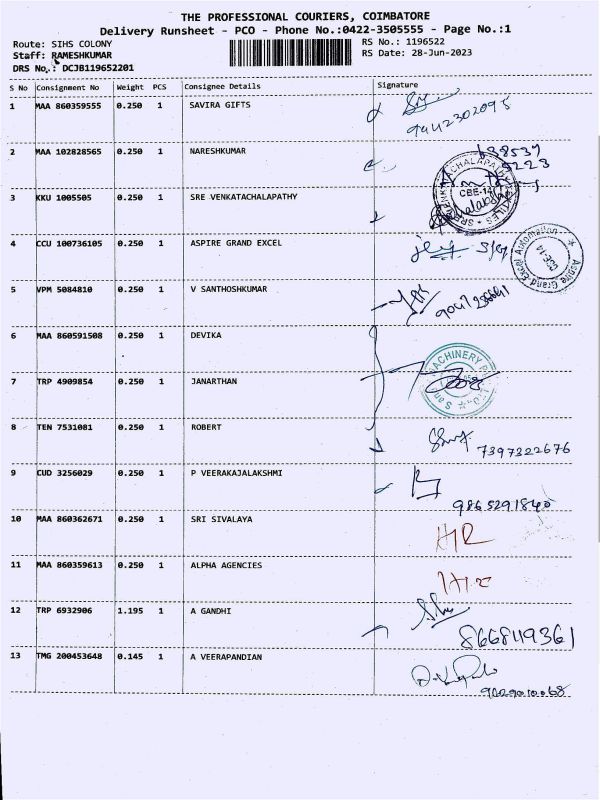 THE PROFESSIONAL COURIERS, COIMBATORE
Delivery Runsheet - PCO - Phone No.:0422-3505555 - Page No.:1
Route: SIHS COLONY RS No.: 1196522
Staff: RAMESHKUMAR RS Date: 28-Jun-2023
DRS No.: DCJB119652201
S No Consignment No Weight PCS Consignee Details Signature
1 MAA 860359555 0.250 1 SAVIRA GIFTS
9442302095
2 MAA 102828565 0.250 1 NARESHKUMAR
3 KKU 1005505 0.250 1 SRE VENKATACHALAPATHY
CBE-14
4 CCU 100736105 0.250 1 ASPIRE GRAND EXCEL
Aspire Grand Excel Automation
CBE-14
5 VPM 5084810 0.250 1 V SANTHOSHKUMAR
6 MAA 860591508 0.250 1 DEVIKA
MACHINERY
7 TRP 4909854 0.250 1 JANARTHAN
8 TEN 7531081 0.250 1 ROBERT
7397322676
9 CUD 3256029 0.250 1 P VEERAKAJALAKSHMI
9865291840
10 MAA 860362671 0.250 1 SRI SIVALAYA
11 MAA 860359613 0.250 1 ALPHA AGENCIES
12 TRP 6932906 1.195 1 A GANDHI
8668119361
13 TMG 200453648 0.145 1 A VEERAPANDIAN